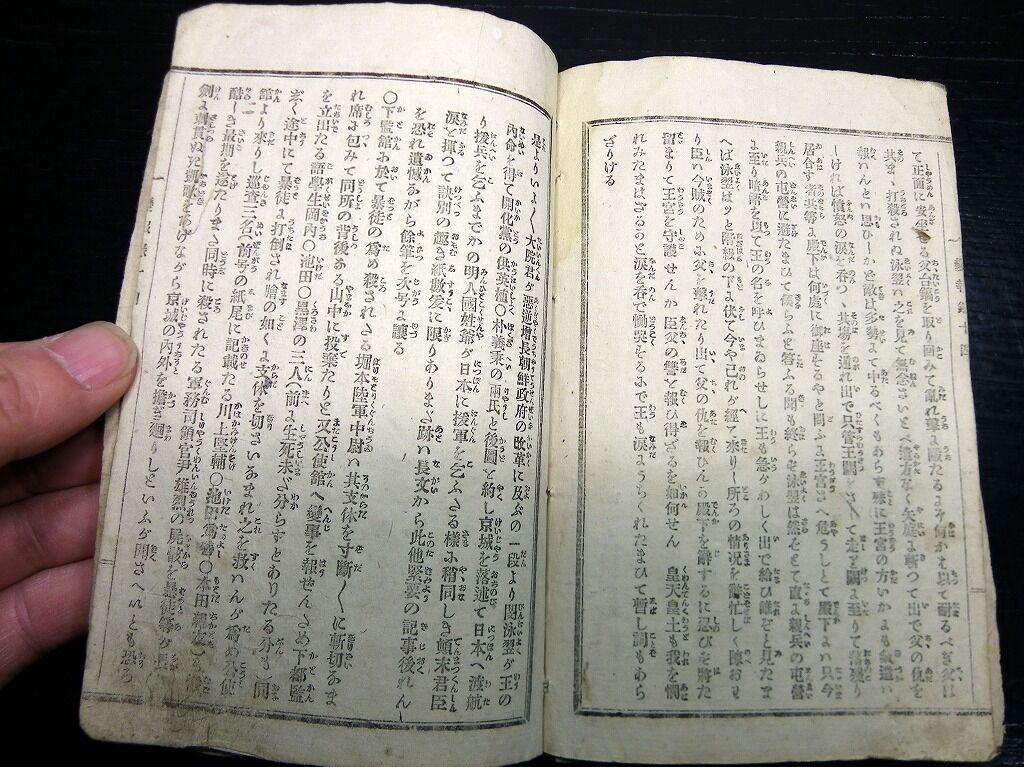 て正面に安坐る父台鎬を取り囲みて乱れ撃よ殿たるよぞ何かハ以て耐るべき父は
其まゝ打殺されぬ泳翊ハ之を見て無念さいとゞ遣方なく矢庭よ斬つて出で父の仇を
報ハんとハ思ひしかど敵は多勢よて中るべくもあらず殊に王宮の方いかよも氣遣ハ
しければ憤怒の涙を呑つゝ其場を通れ出で只管王闕を
居合す者共等よ殿下は何處に御座とるやと問ふよ正宮さへ危うしとて殿下よハ只今
親兵の屯營に避たまひて儀らふと答ふる間も終らせ泳翊は然らとて直よ親兵の屯營
よ至り暗號を以て王の名を呼ひまゐらせしに王も急がわしく出で給ひ誰ぞと見たま
へば泳翊はハッと階段の下よ伏て今や己れが經て来りし所ろの情况を諸忙しく陳おハ
り臣ハ今賊のためよ父を撃れたり出て父の仇を報ひんか殿下を辭するに忍びず將た
留まりて王宮を守護せんか臣父の讐を報ひ得ざるを如何せん　皇天皇土も我を憫
れみたまはざると涙を呑で慟哭するよ王も涙ようちくれたまひて暫し詞もあら
ざりける
是よりいよ〳〵大院君が惡逆增長朝鮮政府の改革に及ぶの一段より閔泳翊が王の
内命を得て開化黨の供英植〇朴義秉の兩氏と後圖を約し京城を落述て日本へ渡航
り援兵を乞ふまでかの明人國姓爺が日本に援軍を乞ふたる樣よ稍同しき顛末君臣
涙を揮つて訣別の趣き紙數爰に限りありまだ跡ハ長文から此他緊要の記事後れん
を恐れ遺憾ながら餘筆を次号よ讓る
〇下監館よ於て暴徒の爲め殺されたる堀本陸軍中尉ハ其支体を寸斷〳〵に斬切なま
れ席よ包みて同所の背後ある山中に投棄たりと又公使館へ變事を報ぜんため下都監
を立出たる語學生岡内〇池田〇黒澤の三人(前よ生死未ざ分らすとありたる分も)同
ぞく途中にて暴徒よ打倒され膾の如くよ支体を切さいあまれ之を救ハんが爲め公使
館より來りし巡査三名(前号の紙尾に記載たる川上堅輔〇池田爲善〇本田親友)も
酷しき最期を遂たりまた同時に殺されたる軍務司領官尹雄烈の屍骸を暴徒等が
劍よ刺貫ぬき凱歌をあげながら京城の内外を擔ぎ廻りしといふが聞さへいとも恐ろ